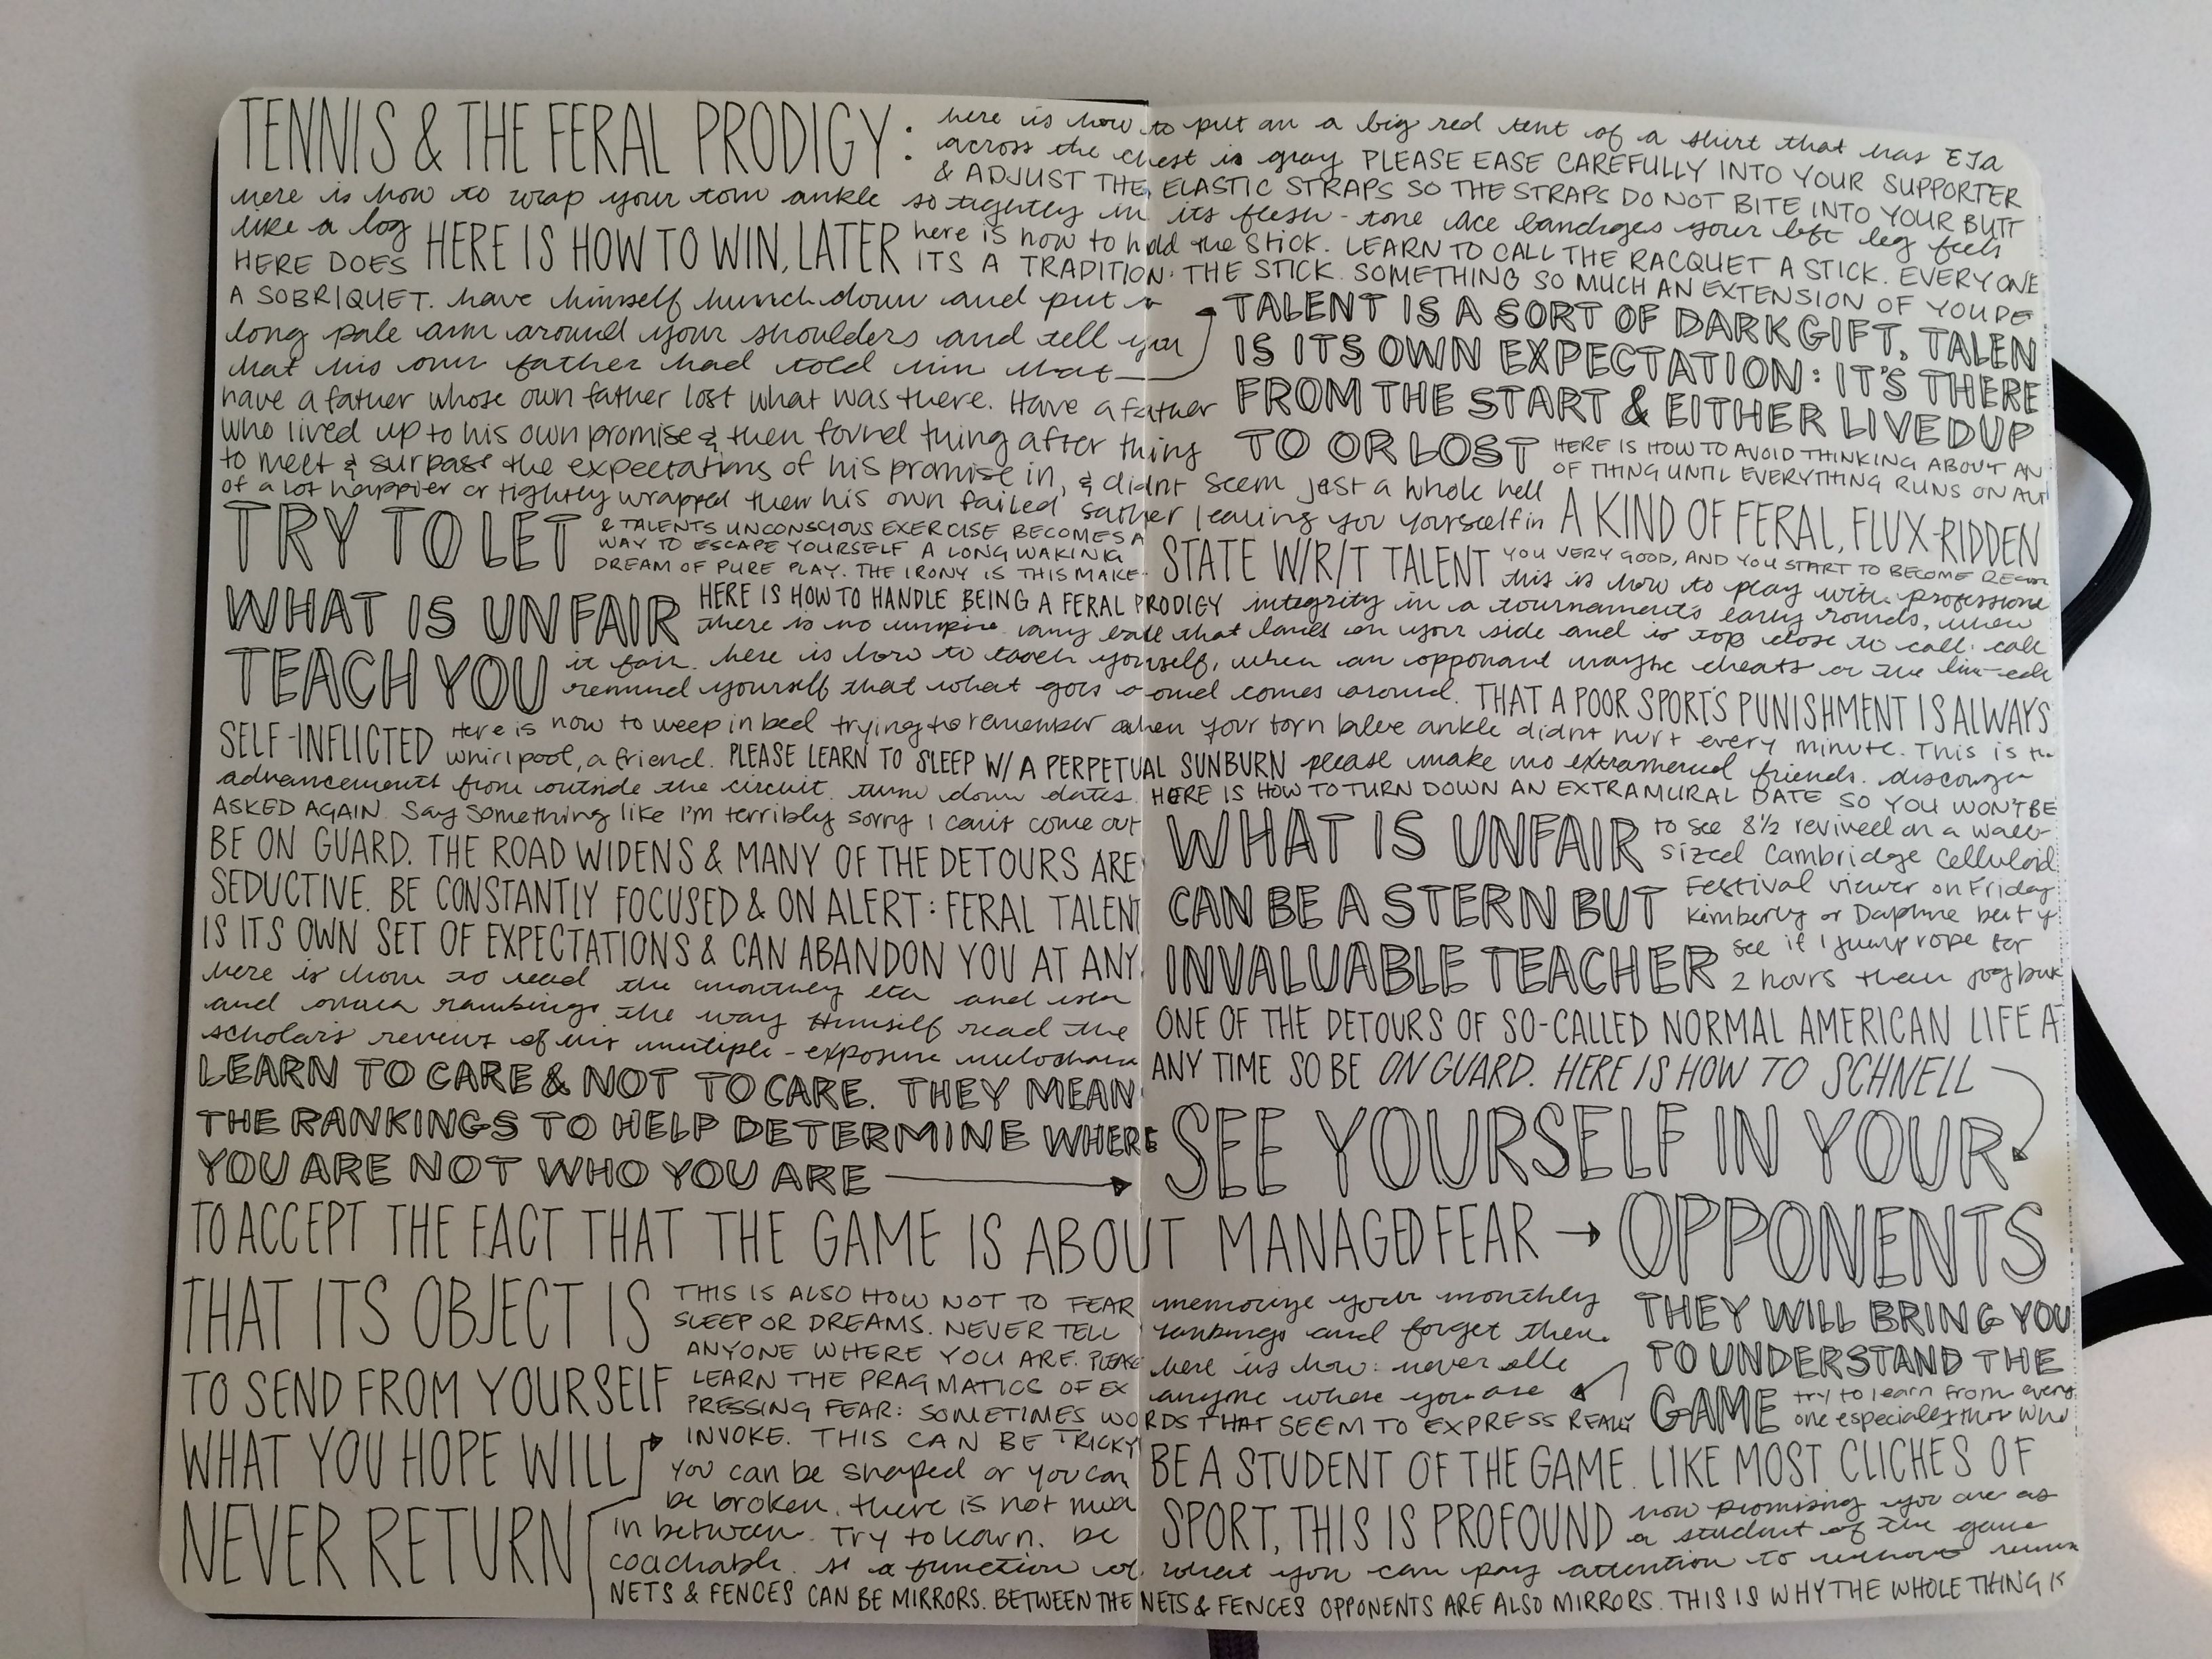 TENNIS & THE FERAL PRODIGY:
here is how to put on a big red tent of a shirt that has ETA
across the chest in gray PLEASE EASE CAREFULLY INTO YOUR SUPPORTER
& ADJUST THE ELASTIC STRAPS SO THE STRAPS DO NOT BITE INTO YOUR BUTT
here is how to wrap your torn ankle so tightly in its flesh-tone ace bandages your left leg feels
like a log
HERE IS HOW TO WIN, LATER
here is how to hold the stick. LEARN TO CALL THE RACQUET A STICK. EVERYONE
HERE DOES
ITS A TRADITION. THE STICK. SOMETHING SO MUCH AN EXTENSION OF YOU DE
A SOBRIQUET. have himself hunch down and put a
long pale arm around your shoulders and tell you
that his own father had told him that
TALENT IS A SORT OF DARK GIFT, TALEN
IS ITS OWN EXPECTATION: IT'S THERE
FROM THE START & EITHER LIVED UP
TO OR LOST
have a father whose own father lost what was there. Have a father
who lived up to his own promise & then found thing after thing
to meet & surpass the expectations of his promise in, & didnt seem just a whole hell
of a lot happier or tightly wrapped then his own failed father leaving you yourself in
HERE IS HOW TO AVOID THINKING ABOUT AN
OF THING UNTIL EVERYTHING RUNS ON AUT
A KIND OF FERAL, FLUX-RIDDEN
STATE W/R/T TALENT
TRY TO LET
& TALENTS UNCONSCIOUS EXERCISE BECOMES A
WAY TO ESCAPE YOURSELF A LONG WAKING
DREAM OF PURE PLAY. THE IRONY IS THIS MAKE
YOU VERY GOOD, AND YOU START TO BECOME
WHAT IS UNFAIR
HERE IS HOW TO HANDLE BEING A FERAL PRODIGY
this is how to play with professiona
integrity in a tournament's early rounds, when
there is no umpire. any ball that lands on your side and is too close to call: call
TEACH YOU
it fair. here is how to teach yourself, when an opponant maybe cheats on the
remind yourself that what goes around comes around. THAT A POOR SPORT'S PUNISHMENT IS ALWAYS
SELF-INFLICTED
Here is how to weep in bed trying to remember when your torn blue ankle didnt hurt every minute. This is the
whirlpool, a friend. PLEASE LEARN TO SLEEP W/ A PERPETUAL SUNBURN please make no extramural friends. discourage
advancements from outside the circuit. turn down dates. HERE IS HOW TO TURN DOWN AN EXTRAMURAL DATE SO YOU WON'T BE
ASKED AGAIN. Say something like I'm terribly sorry I can't come out
to see 8½ revived on a wall-
sized Cambridge Celluloid
Festival viewer on Friday
Kimberly or Daphne but y
see if I jump rope for
2 hours then jog
BE ON GUARD. THE ROAD WIDENS & MANY OF THE DETOURS ARE
SEDUCTIVE. BE CONSTANTLY FOCUSED & ON ALERT: FERAL TALENT
IS ITS OWN SET OF EXPECTATIONS & CAN ABANDON YOU AT ANY
WHAT IS UNFAIR
CAN BE A STERN BUT
INVALUABLE TEACHER
ONE OF THE DETOURS OF SO-CALLED NORMAL AMERICAN LIFE A
ANY TIME SO BE ON GUARD. HERE IS HOW TO SCHNELL
here is how to read the monthly eta and usta
and onanta rankings the way Himself read the
scholars reviews of his multiple-exposure
LEARN TO CARE & NOT TO CARE. THEY MEAN
THE RANKINGS TO HELP DETERMINE WHERE
YOU ARE NOT WHO YOU ARE
SEE YOURSELF IN YOUR
OPPONENTS
TO ACCEPT THE FACT THAT THE GAME IS ABOUT MANAGED FEAR
THAT ITS OBJECT IS
TO SEND FROM YOURSELF
WHAT YOU HOPE WILL
NEVER RETURN
THEY WILL BRING YOU
TO UNDERSTAND THE
GAME
memorize your monthly
rankings and forget them.
here is how: never
anyone where you are
THIS IS ALSO HOW NOT TO FEAR
SLEEP OR DREAMS. NEVER TELL
ANYONE WHERE YOU ARE. PLEASE
LEARN THE PRAGMATICS OF EX
PRESSING FEAR: SOMETIMES WORDS THAT SEEM TO EXPRESS REALLY
INVOKE. THIS CAN BE TRICKY
try to learn from every
one especially those who
You can be shaped or you can
be broken. there is not much
in between. Try to learn. be
coachable.
BE A STUDENT OF THE GAME. LIKE MOST CLICHES OF
SPORT, THIS IS PROFOUND
how promising you are as
a student of the game
is a function of what you can pay attention to without
NETS & FENCES CAN BE MIRRORS. BETWEEN THE NETS & FENCES OPPONENTS ARE ALSO MIRRORS. THIS IS WHY THE WHOLE THING IS